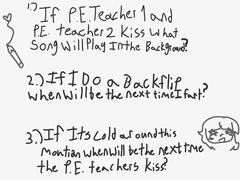 1.) If P.E. Teacher 1 and
P.E. teacher 2 kiss what
Song will Play In the Background?
2.) If I Do a Backflip
when will be the next time I fart?
3.) If Its cold around this
montian when will be the next time
the P.E. teachers kiss?